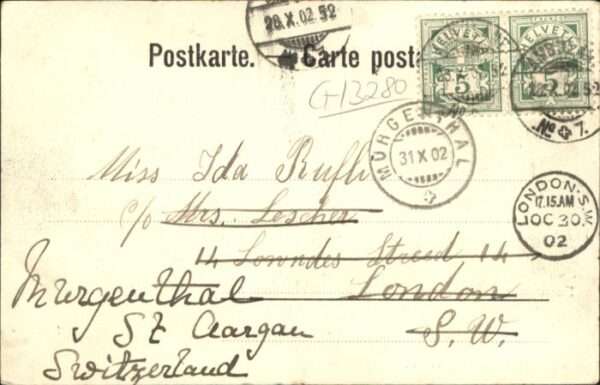 28.X.02.52
Postkarte. Carte posta
G13280
HELVETIA HELVETIA
5 5
No 7.
MURGENTHAL
31 X 02
LONDON.S.W.
12.15.AM
OC 30
02
Miss Ida Rufli
c/o Mrs. Lescher
14 Lowndes Street 14
London
S.W.
Murgenthal
Aargau
Switzerland